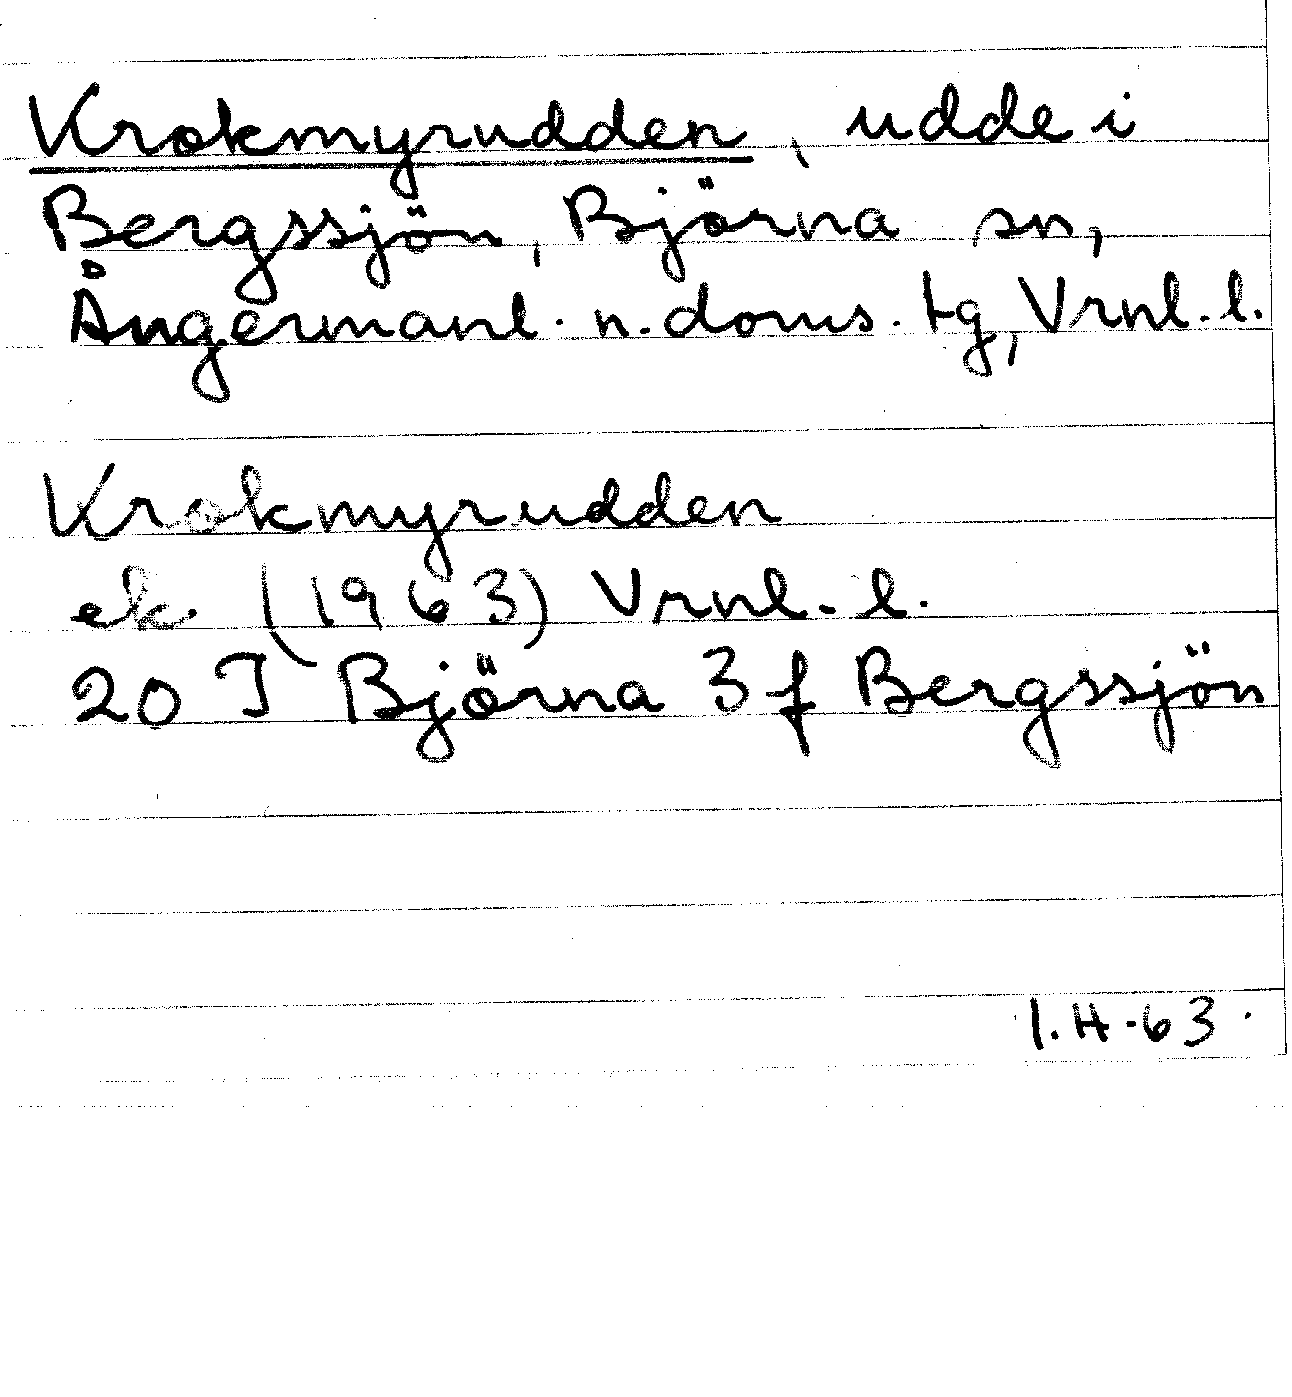 Krokmyrudden, udde i
Bergssjön, Björna sn,
Ångermanl. n. doms. tg, Vrnl. l.
Krokmyrudden
ek. (1963) Vrnl. l.
20 I Björna 3 f Bergssjön
I.H.-63.